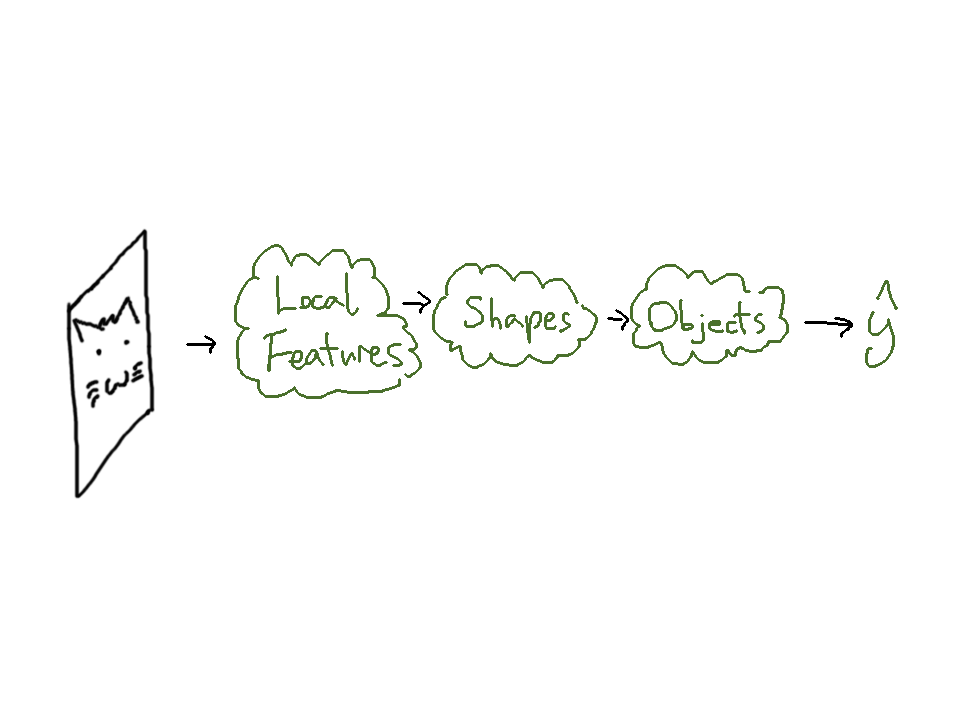 Local
Features
Shapes
Objects
ŷ